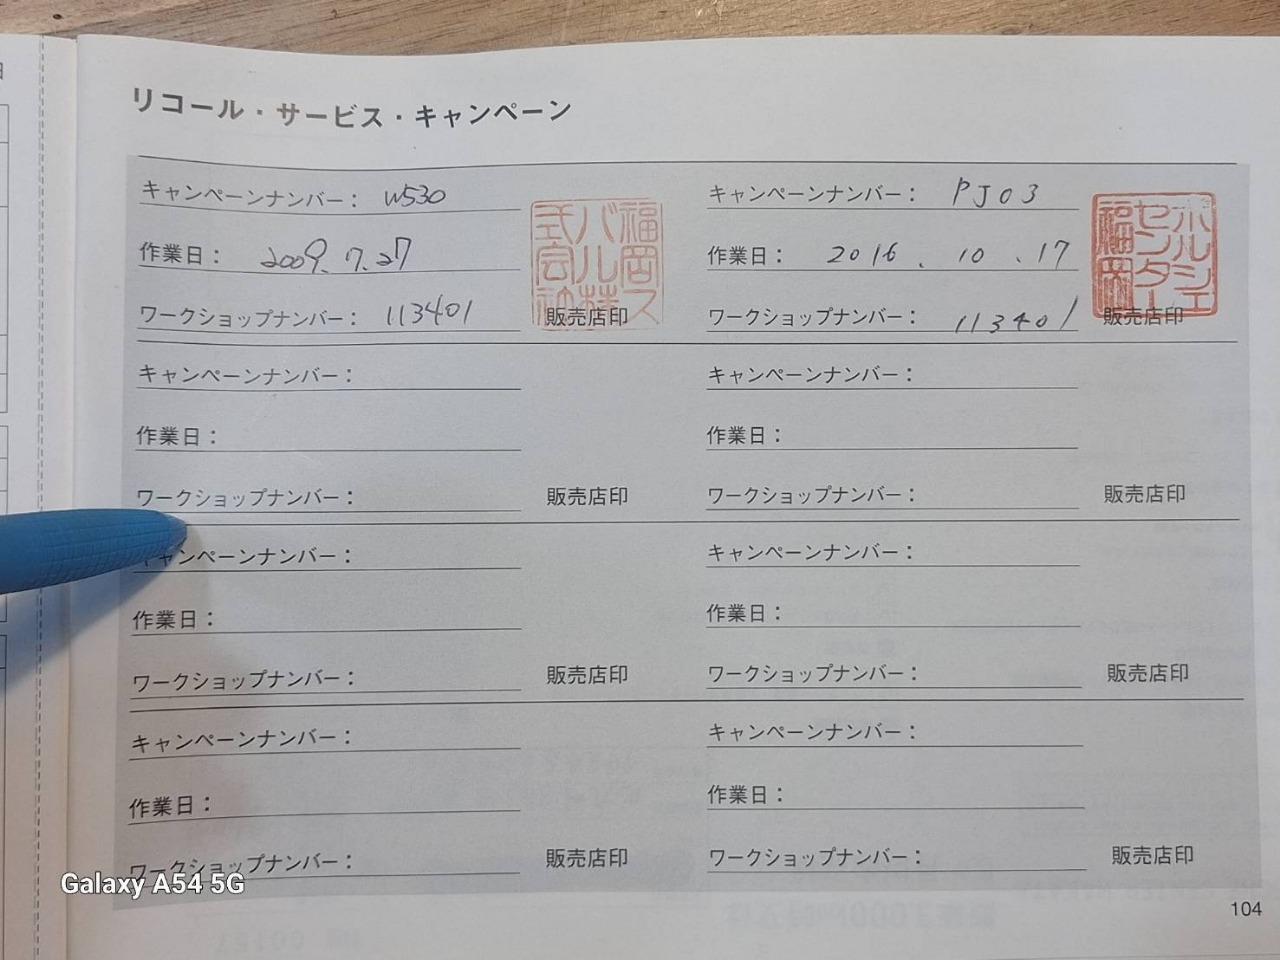 リコール・サービス・キャンペーン
キャンペーンナンバー： W530
作業日： 2009. 7. 27
ワークショップナンバー： 113401
販売店印
福岡スバル株式会社
キャンペーンナンバー： PJ03
作業日： 2016 . 10 . 17
ワークショップナンバー： 113401
販売店印
ポルシェセンター福岡
キャンペーンナンバー：
作業日：
ワークショップナンバー：
販売店印
キャンペーンナンバー：
作業日：
ワークショップナンバー：
販売店印
キャンペーンナンバー：
作業日：
ワークショップナンバー：
販売店印
キャンペーンナンバー：
作業日：
ワークショップナンバー：
販売店印
キャンペーンナンバー：
作業日：
ワークショップナンバー：
販売店印
キャンペーンナンバー：
作業日：
ワークショップナンバー：
販売店印
104
Galaxy A54 5G